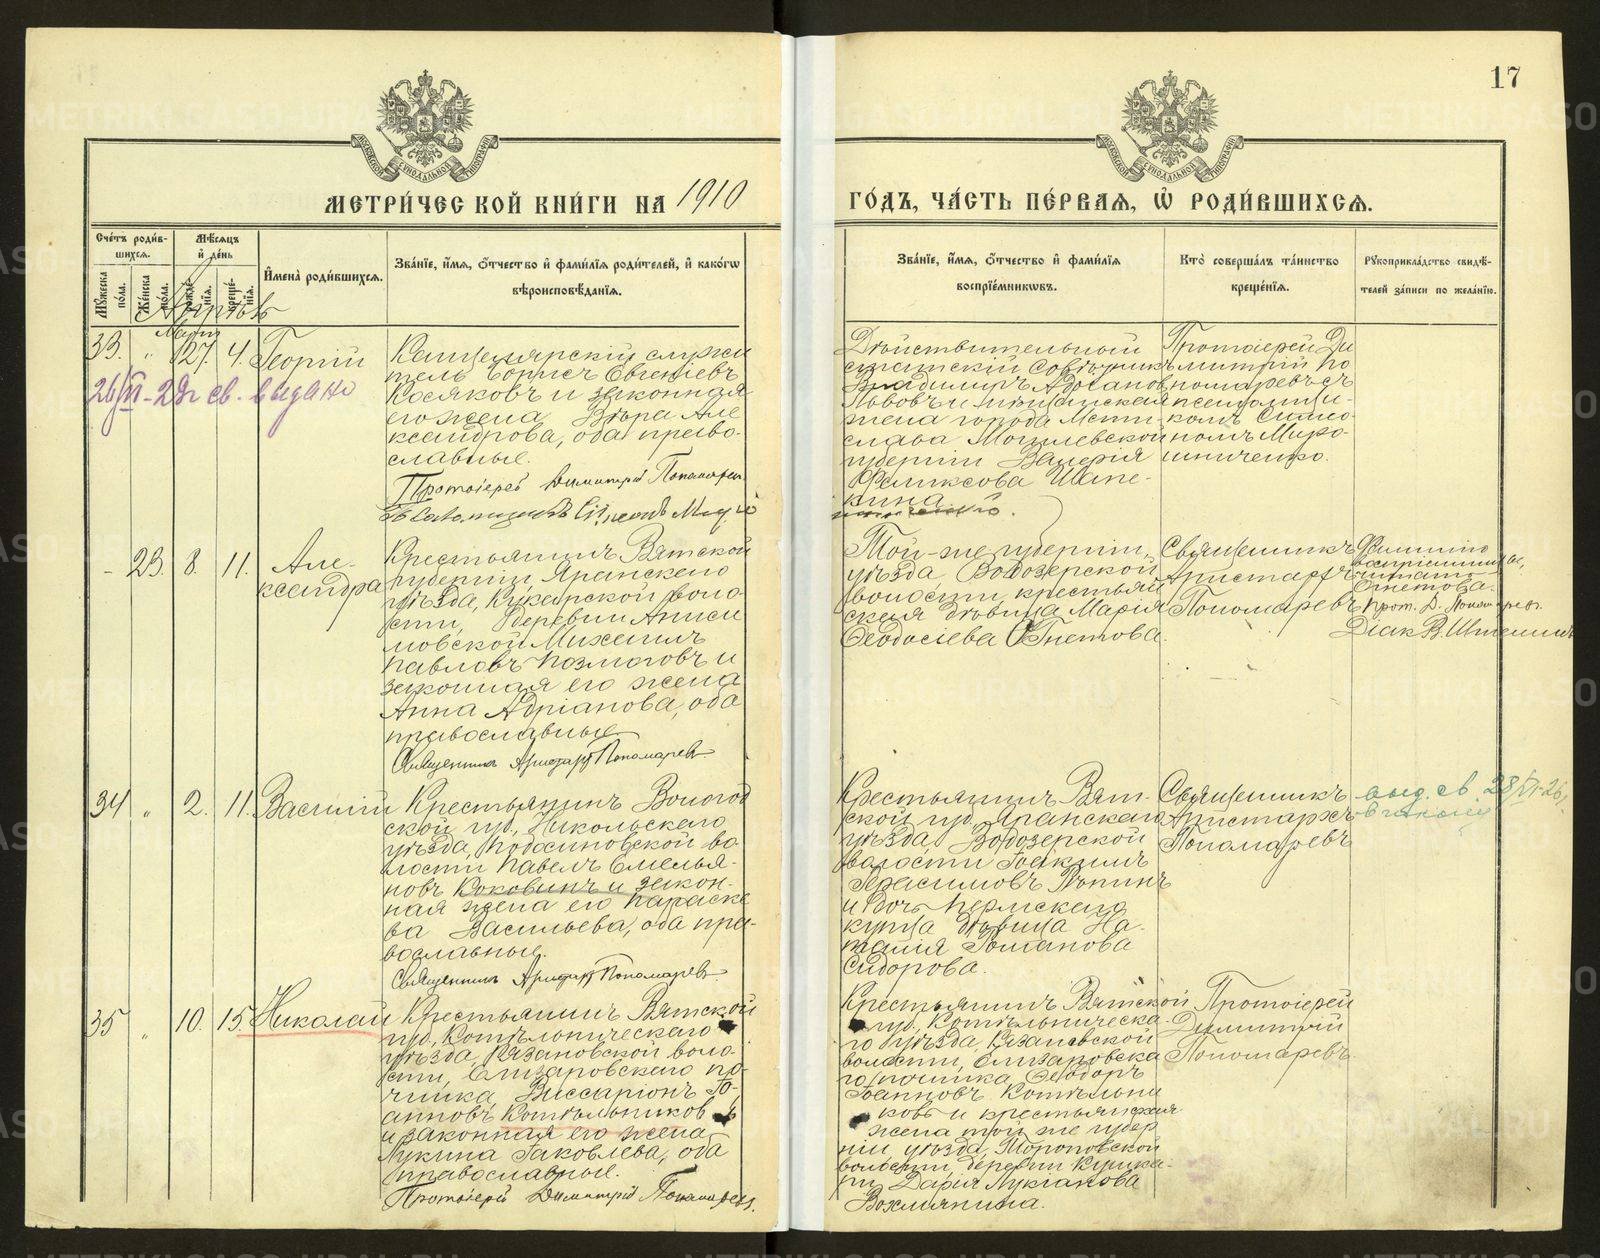 17
МЕТРИ́ЧЕСКОЙ КНИ́ГИ НА 1910
ГО́ДЪ, ЧА́СТЬ ПЕ́РВАѦ, Ѡ҆ РОДИ́ВШИХСѦ.
Сче́тъ роди́вшихсѧ.
Мѣ́сѧцъ и҆ де́нь
Мꙋ́жеска по́ла.
Же́нска по́ла.
рожде́нїѧ.
креще́нїѧ.
И҆мена̀ роди́вшихсѧ.
Зва́нїе, и҆́мѧ, ѻ҆́тчество и҆ фами́лїѧ роди́телей, и҆ како́гѡ
вѣроисповѣ́данїѧ.
Зва́нїе, и҆́мѧ, ѻ҆́тчество и҆ фами́лїѧ
воспрїе́мникѡвъ.
Кто̀ соверша́лъ та́инство
креще́нїѧ.
Рꙋкоприкла́дство свидѣ́-
телей за́писи по жела́нїю.
Апрѣль
Март
33. " 27. 4. Георгій
26/VI-29г св. выдано
Канцелярскій служи
тель Борисъ Евгеніевъ
Косяковъ и законная
его жена Вѣра Але
ксандрова, оба право-
славные.
Протоіерей Димитрій Пономарев
Дѣйствительный
статскій Совѣтникъ
Владимиръ Адосанов
Львовъ и мѣщанская
жена города Мсти-
слава Могилевской
губерніи Валерія
Феликсова Шапе-
кина
Протоіерей Ди
митрій По
номаревъ съ
псаломщи-
комъ Симео-
номъ Миро-
шниченко.
- 23. 8. 11. Але-
ксандра
Крестьянинъ Вятской
губерніи Яранскаго
уѣзда, Кукарской воло
сти, деревни Аниси
мовской Михаилъ
Павловъ Возмоговъ и
законная его жена
Анна Адріанова, оба
православные
Священник Аристарх Пономарев
Той-же губерніи,
уѣзда Водозерской
волости, крестьян
ская дѣвица Марія
Ѳеодосіева Гнетова.
Священникъ
Аристархъ
Пономаревъ
Фамилію
воспріемницы,
читать
Огнетова.
Прот. Д. Пономарев.
Діак В. Штенинъ
34 " 2. 11. Василій
Крестьянинъ Вологод
ской губ, Никольскаго
уѣзда, Подосиновской во
лости Павелъ Емелья-
новъ Коковинъ и закон-
ная жена его Параске
ва Васильева, оба пра-
вославные.
Священник Аристарх Пономарев
Крестьянинъ Вят-
ской губ. Яранскаго
уѣзда Водозерской
волости Іоакимъ
Герасимовъ Лѣпинъ
и дочь Пермскаго
купца дѣвица На-
талія Романова
Сидорова.
Священникъ
Аристархъ
Пономаревъ
выд. св 28/VI-26г.
35 " 10. 15. Николай
Крестьянинъ Вятской
губ, Котельническаго
уѣзда, Казановской воло-
сти, Елизаровскаго по-
чинка, Виссаріонъ Іо-
анновъ Котельников ъ
и законная его жена
Лукина Іаковлева, оба
православные.
Протоіерей Димитрій Пономарев.
Крестьянинъ Вятской
губ, Котельническа-
го уѣзда Казановской
волости, Елизаровска
го починка Ѳеодоръ
Іоанновъ Котельни
ковъ и крестьянская
жена той же губер
ніи уѣзда, Тороповской
волости, деревни Кушка-
ри Дарія Лукіанова
Вохмянина.
Протоіерей
Димитрій
Пономаревъ.